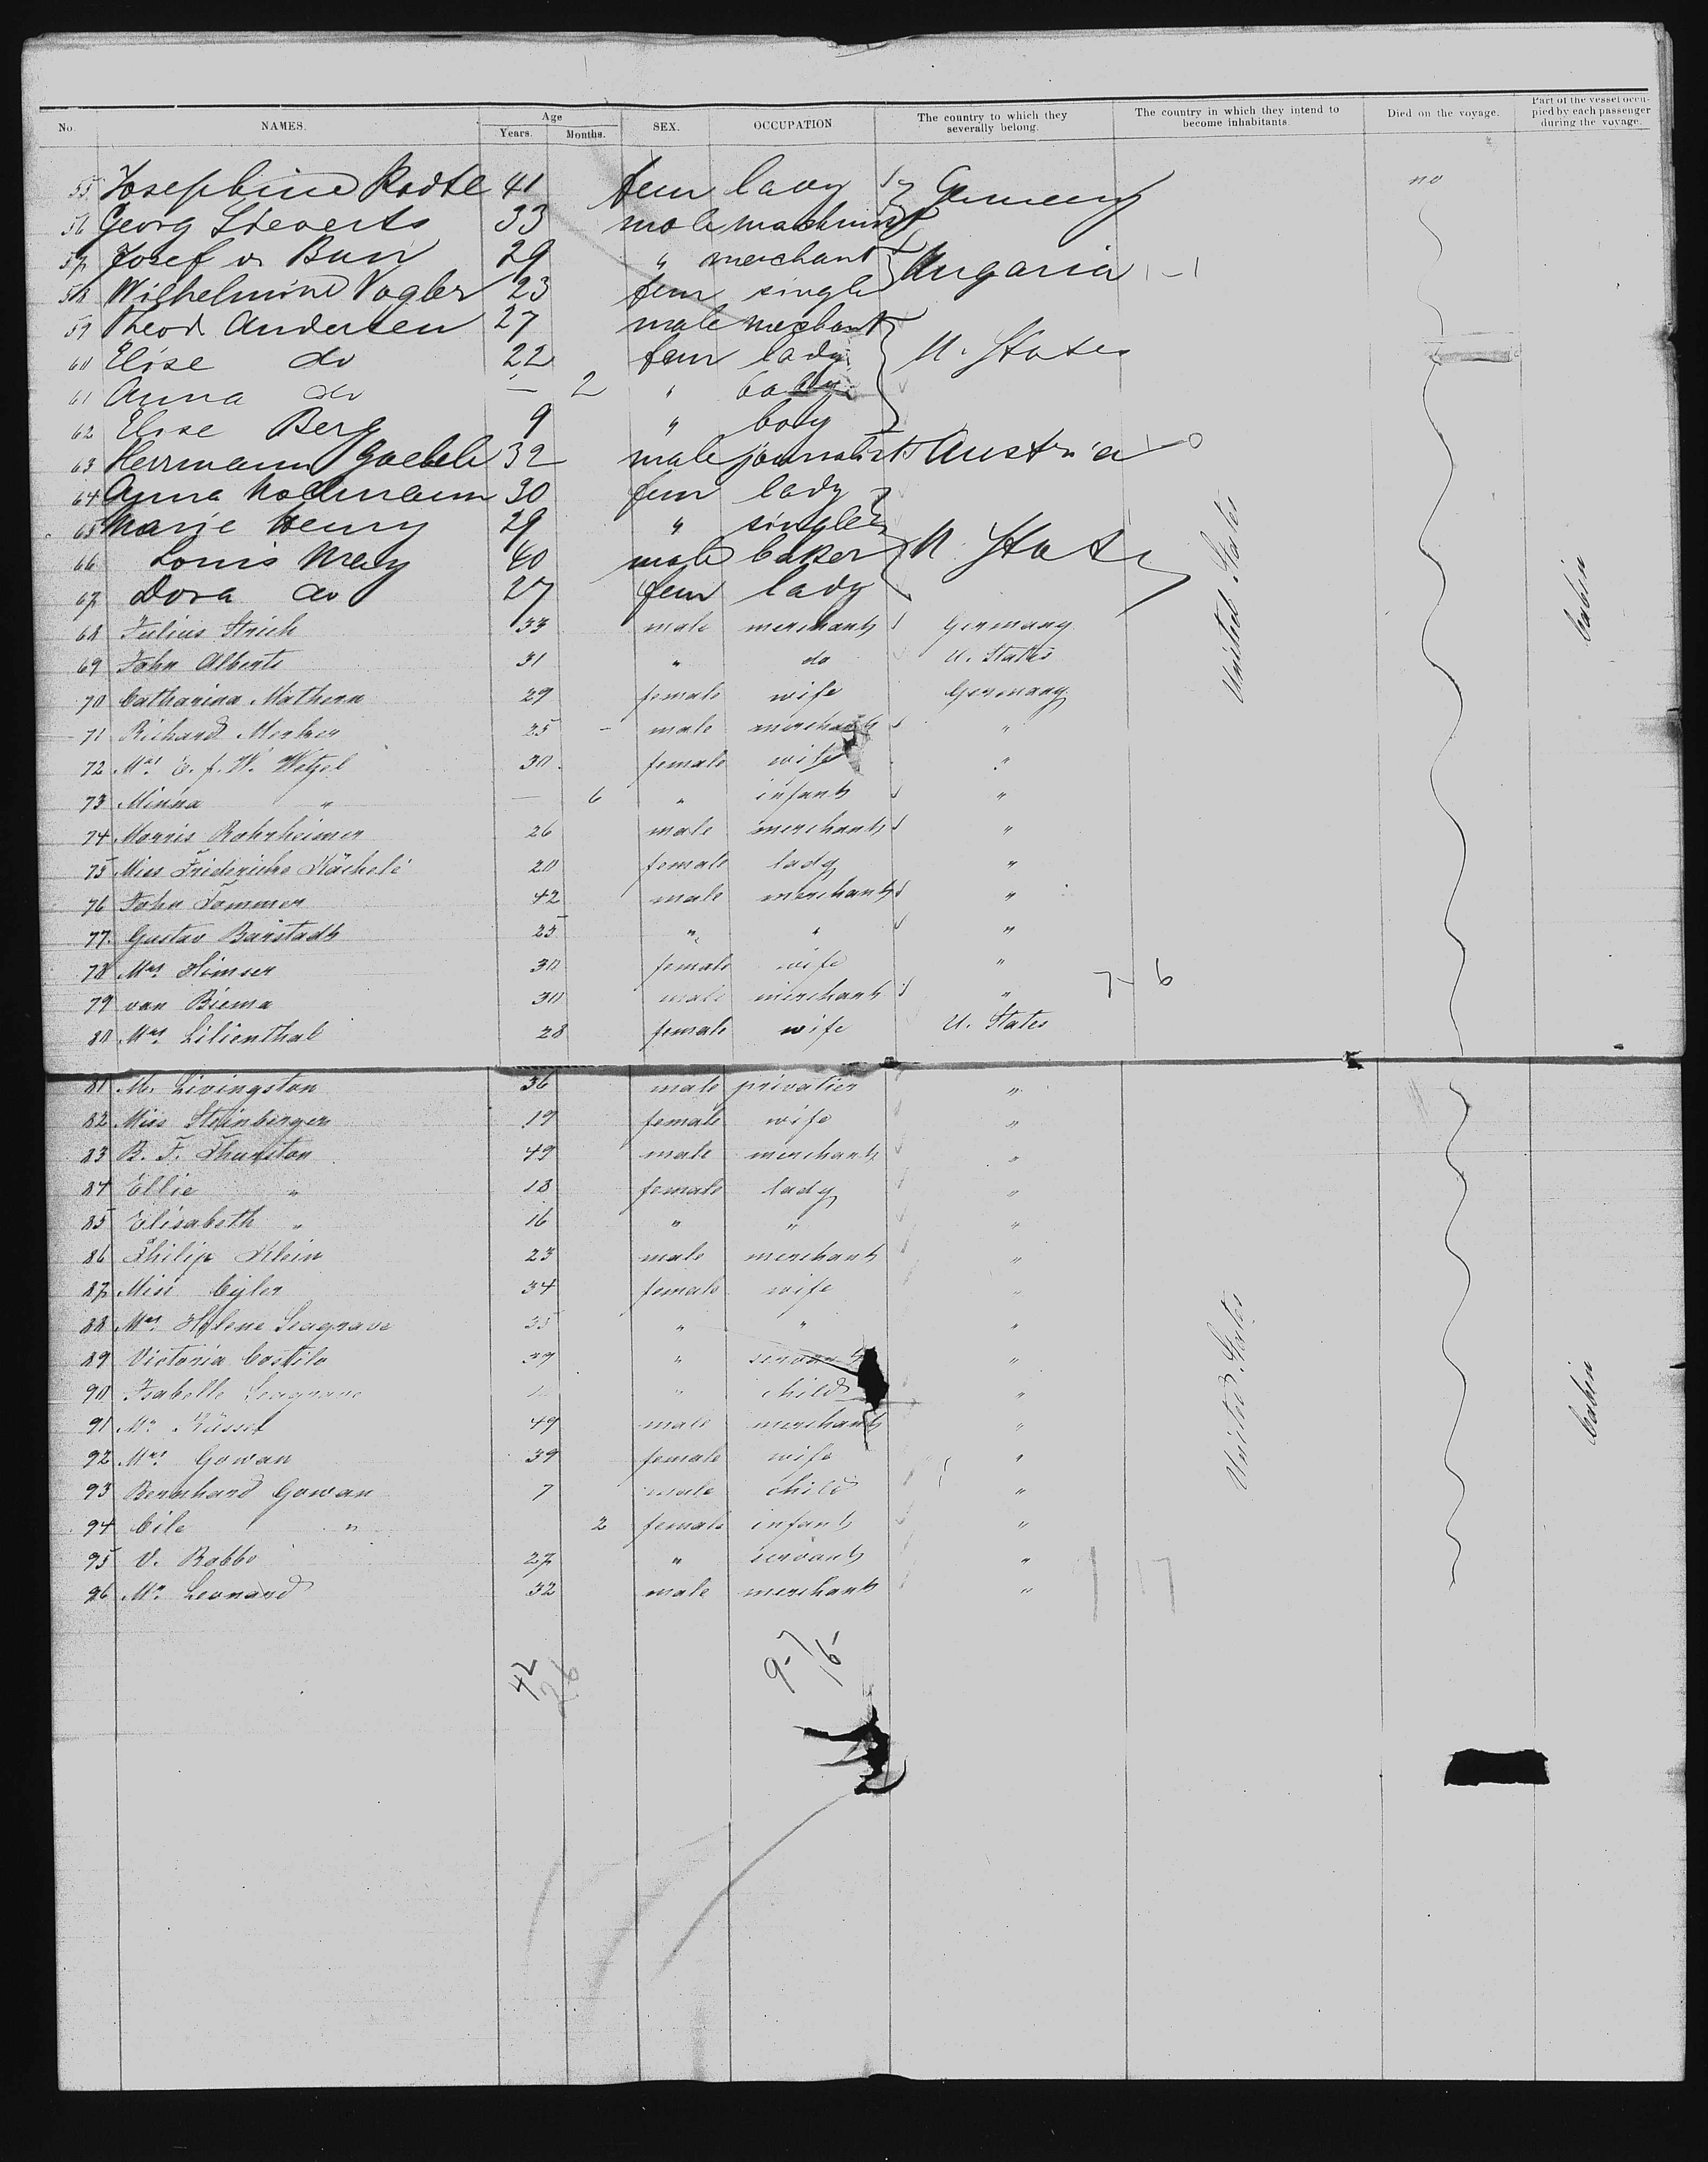 No. NAMES. Age Years. Months. SEX. OCCUPATION The country to which they severally belong. The country in which they intend to become inhabitants. Died on the voyage. Part of the vessel occupied by each passenger during the voyage.
55 Josephine Radte 41 fem lady Germany no
56 Georg Sieverts 33 male machinist
57 Josef v. Barr 29 " merchant Ungaria 1-1
58 Wilhelmine Vogler 23 fem single
59 Theod Andersen 27 male merchant U. States
60 Elise do 22 fem lady
61 Anna do — 2 " baby
62 Elise Berg 9 " boby
63 Herrmann Goebele 32 male journalist Austria 1-0
64 Anna 30 fem lady
65 Marie Henry 29 " single
66 Louis May 40 male baker U. States
67 Dora do 27 fem lady
68 Julius Strich 33 male merchant Germany
69 John Alberts 31 " do U. States
70 Catharina Mathern 29 female wife Germany
71 Richard Mentzer 25 - male merchant "
72 Mrs. C. f. W. Wetzel 30 female wife "
73 Minna " — 6 " infant "
74 Morris Rohrheimer 26 male merchant "
75 Miss Friedericke Kächelé 20 female lady "
76 John Tommer 42 male merchant "
77 Gustav Barstadt 25 " " "
78 Mrs. Himser 30 female wife "
79 van Biema 30 male merchant " 7-6
80 Mrs. Lilienthal 28 female wife U. States
United States
Cabin
81 M. Livingston 36 male privatier "
82 Miss Steinberger 19 female wife "
83 B. F. Thurston 49 male merchant "
84 Ellie " 18 female lady "
85 Elisabeth " 16 " " "
86 Philip Klein 23 male merchant "
87 Miss Cyler 34 female wife "
88 Mrs. Helene Seagrave 35 " " "
89 Victoria Costilo 39 " servant "
90 Isabelle Seagrave " child "
91 Mr. Küssel 49 male merchant "
92 Mrs. Gowan 39 female wife "
93 Bernhard Gowan 7 male child "
94 Cile " 2 female infant "
95 V. Babbe 27 " servant "
96 Mr. Leonard 32 male merchant " 1 17
United States
Cabin
42
26
9-7
16-